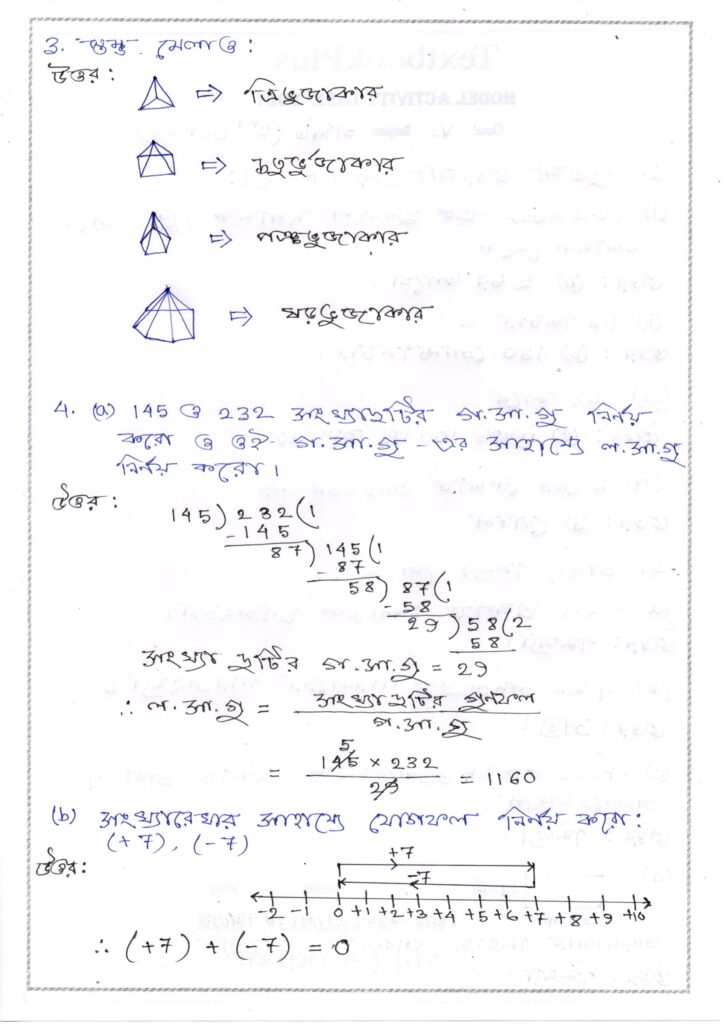 3. স্তম্ভ মেলাও :
উত্তর :
⇨ ত্রিভুজাকার
⇨ চতুর্ভুজাকার
⇨ পঞ্চভুজাকার
⇨ ষড়ভুজাকার
4. (a) 145 ও 232 সংখ্যাদুটির গ.সা.গু নির্ণয়
করো ও ওই গ.সা.গু - এর সাহায্যে ল.সা.গু
নির্ণয় করো।
উত্তর :
145) 232 (1
-145
87) 145 (1
-87
58) 87 (1
-58
29) 58 (2
58
সংখ্যা দুটির গ.সা.গু = 29
∴ ল.সা.গু = সংখ্যাদুটির গুণফল
গ.সা.গু
5
= 145 × 232 = 1160
29
(b) সংখ্যারেখার সাহায্যে যোগফল নির্ণয় করো:
(+7), (-7)
উত্তর:
+7
-7
-2 -1 0 +1 +2 +3 +4 +5 +6 +7 +8 +9 +10
∴ (+7) + (-7) = 0